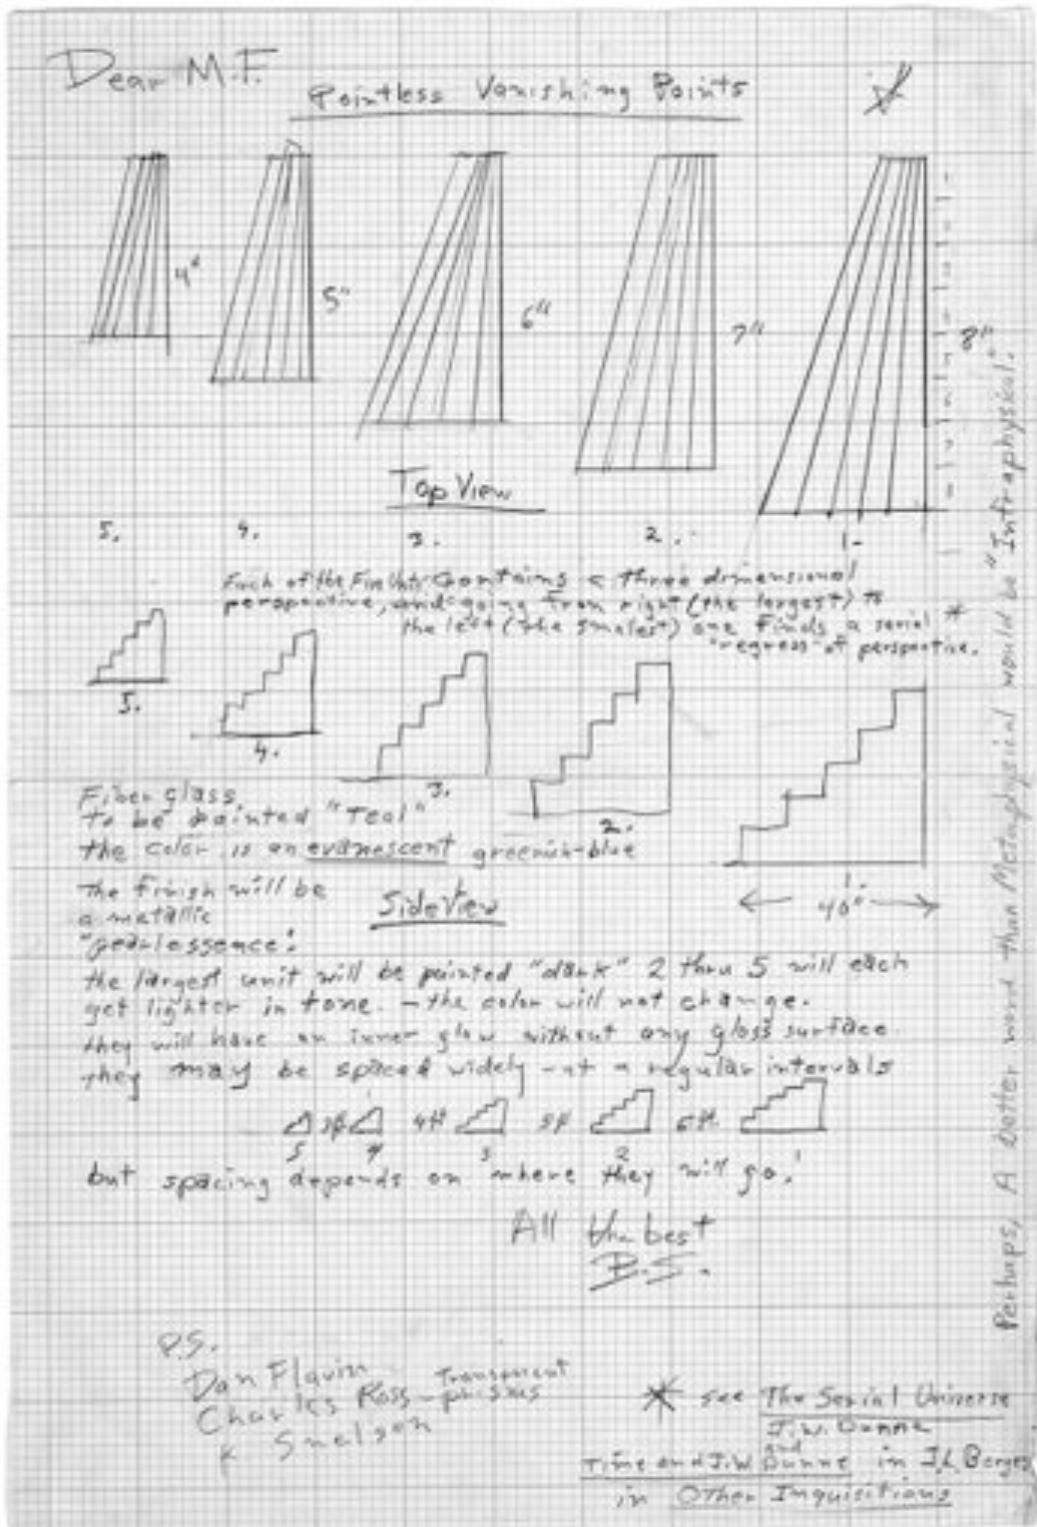 Dear M.F.
Pointless Vanishing Points
4"
5"
6"
7"
8"
Top View
5. 4. 3. 2. 1.
Each of the Five Units contains a three dimensional
perspective, and going from right (the largest) to
the left (the smalest) one finds a serial *
"regress" of perspective.
5.
4.
3.
2.
1.
40"
Fiber glass
to be painted "Teal"
the color is an evanescent greenish-blue
The finish will be
a metallic
"pearlessence".
Side View
the largest unit will be painted "dark" 2 thru 5 will each
get lighter in tone. - the color will not change.
they will have an inner glow without any gloss surface.
they may be spaced widely - at a regular intervals
3ft 4ft 5ft 6ft
5 4 3 2 1
but spacing depends on where they will go.
All the best
B.S.
P.S.
Dan Flavin
Charles Ross - Transparent
K Snelson
* see The Serial Universe
J.W. Dunne
and
Time and J.W. Dunne in J.L. Borges
in Other Inquisitions
Perhaps, A better word than Metaphysical would be "Infraphysical".